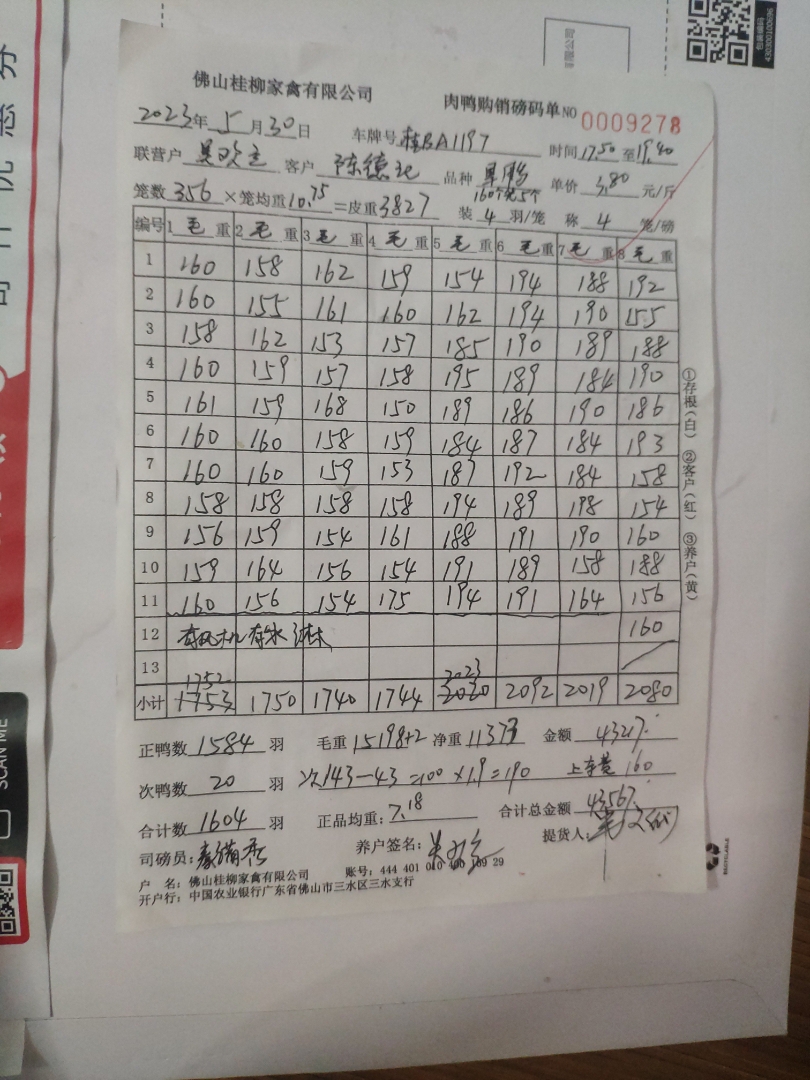 佛山桂柳家禽有限公司
肉鸭购销磅码单 NO 0009278
2023年 5月30日 车牌号 桂RA1197 时间 17.50 至 19.40
联营户 客户 陈德记 品种 单价 3.80 元/斤
笼数 356 ×笼均重 10.75 =皮重 3827 装 4 羽/笼 称 4 笼/磅
编号 1 毛 重 2 毛 重 3 毛 重 4 毛 重 5 毛 重 6 毛 重 7 毛 重 8 毛 重
1 160 158 162 159 154 194 188 192
2 160 155 161 160 162 194 190 155
3 158 162 153 157 185 190 189 188
4 160 159 157 158 195 189 184 190
5 161 159 168 150 189 186 190 186
6 160 160 158 159 184 187 184 193
7 160 160 159 153 187 192 184 158
8 158 158 158 158 194 189 198 154
9 156 159 154 161 188 191 190 160
10 159 164 156 154 191 189 158 188
11 160 156 154 175 194 191 164 156
12 160
13
1752 2023
小计 1753 1750 1740 1744 2020 2092 2019 2080
正鸭数 1584 羽 毛重 15198+2 净重 11373 金额 43217.
次鸭数 20 羽 次143-43=100×1.9=190 160
合计数 1604 羽 正品均重: 7.18 合计总金额 43567.
司磅员: 养户签名: 提货人:
户 名: 佛山桂柳家禽有限公司 账号: 444 401 010 400 159 29
开户行: 中国农业银行广东省佛山市三水区三水支行
①存根(白) ②客户(红) ③养户(黄)
SCAN ME
RECYCLABLE